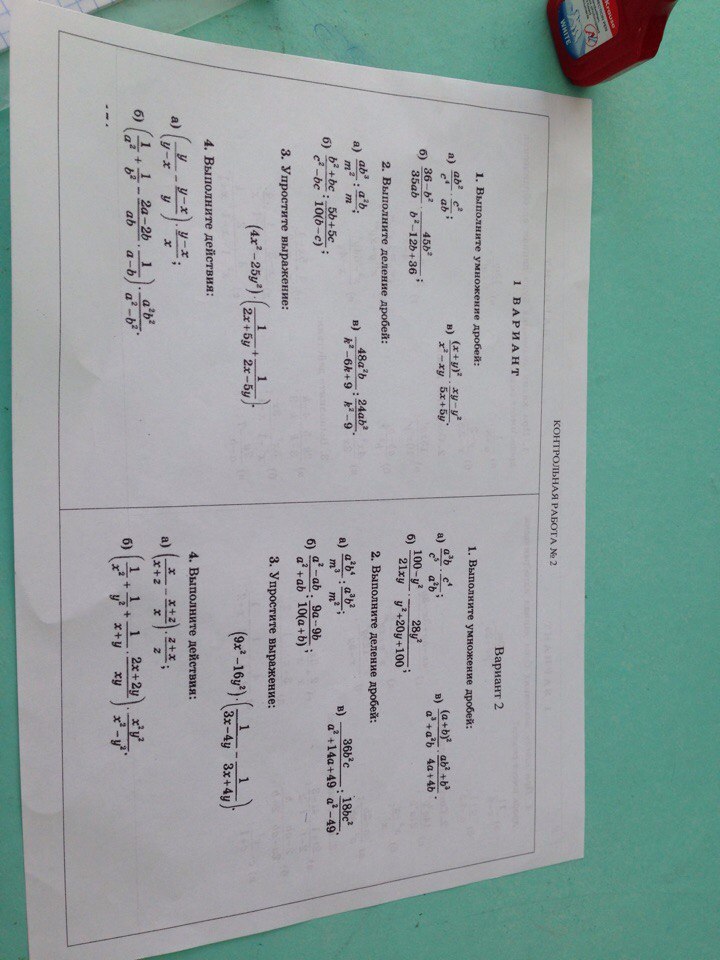 КОНТРОЛЬНАЯ РАБОТА № 2
1 ВАРИАНТ
1. Выполните умножение дробей:
а) ab²/c⁴ · c²/ab;
в) (x+y)²/(x²−xy) · (xy−y²)/(5x+5y).
б) (36−b²)/35ab · 45b²/(b²−12b+36);
2. Выполните деление дробей:
а) ab³/m² : a²b/m;
в) 48a²b/(k²−6k+9) : 24ab²/(k²−9).
б) (b²+bc)/(c²−bc) : (5b+5c)/10(b−c);
3. Упростите выражение:
(4x²−25y²)·(1/(2x+5y) + 1/(2x−5y)).
4. Выполните действия:
а) (y/(y−x) − (y−x)/y) · (y−x)/x;
б) (1/a² + 1/b² − (2a−2b)/ab · 1/(a−b)) · a²b²/(a²−b²).
Вариант 2
1. Выполните умножение дробей:
а) a³b/c⁵ · c⁴/a²b;
в) (a+b)²/(a³+a²b) · (ab²+b³)/(4a+4b).
б) (100−y²)/21xy · 28y²/(y²+20y+100);
2. Выполните деление дробей:
а) a²b⁴/m³ : a³b²/m²;
в) 36b²c/(a²+14a+49) : 18bc²/(a²−49).
б) (a²−ab)/(a²+ab) : (9a−9b)/10(a+b);
3. Упростите выражение:
(9x²−16y²)·(1/(3x−4y) − 1/(3x+4y)).
4. Выполните действия:
а) (x/(x+z) − (x+z)/x) · (z+x)/z;
б) (1/x² + 1/y² + 1/(x+y) · (2x+2y)/xy) · x²y²/(x²−y²).
WHITE